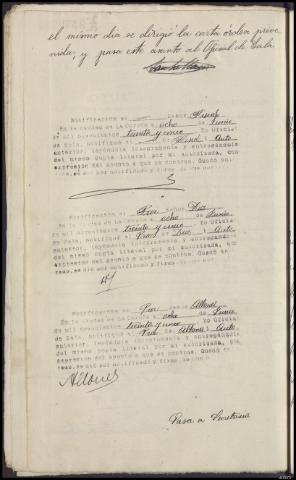 el mismo dia se dirigió la carta órden preve
nida; y pasa este asunto al Oficial de Sala.
Notificación al señor Fiscal
En la ciudad de La Coruña a ocho de Junio
de mil novecientos treinta y cinco Yo Oficial
de Sala, notifiqué al Sr. Fiscal el Auto
anterior, leyéndole íntegramente y entregándole
del mismo copia literal por mi autorizada, con
expresión del asunto a que se contrae. Quedó en
terado, se dió por notificado y firma de que
Notificación al Pror señor Dios
En la ciudad de La Coruña a ocho de Junio
de mil novecientos treinta y cinco Yo Oficial
de Sala, notifiqué al Pror Sr. Dios el Auto
anterior, leyéndole íntegramente y entregándole
del mismo copia literal por mi autorizada, con
expresión del asunto a que se contrae. Quedó en
terado, se dió por notificado y firma de que
Notificación al Pror señor
En la ciudad de La Coruña a ocho de Junio
de mil novecientos treinta y cinco Yo Oficial
de Sala, notifiqué al Pror Sr. el Auto
anterior, leyéndole íntegramente y entregándole
del mismo copia literal por mi autorizada, con
expresión del asunto a que se contrae. Quedó en
terado, se dió por notificado y firma de que
Pasa a Secretaria